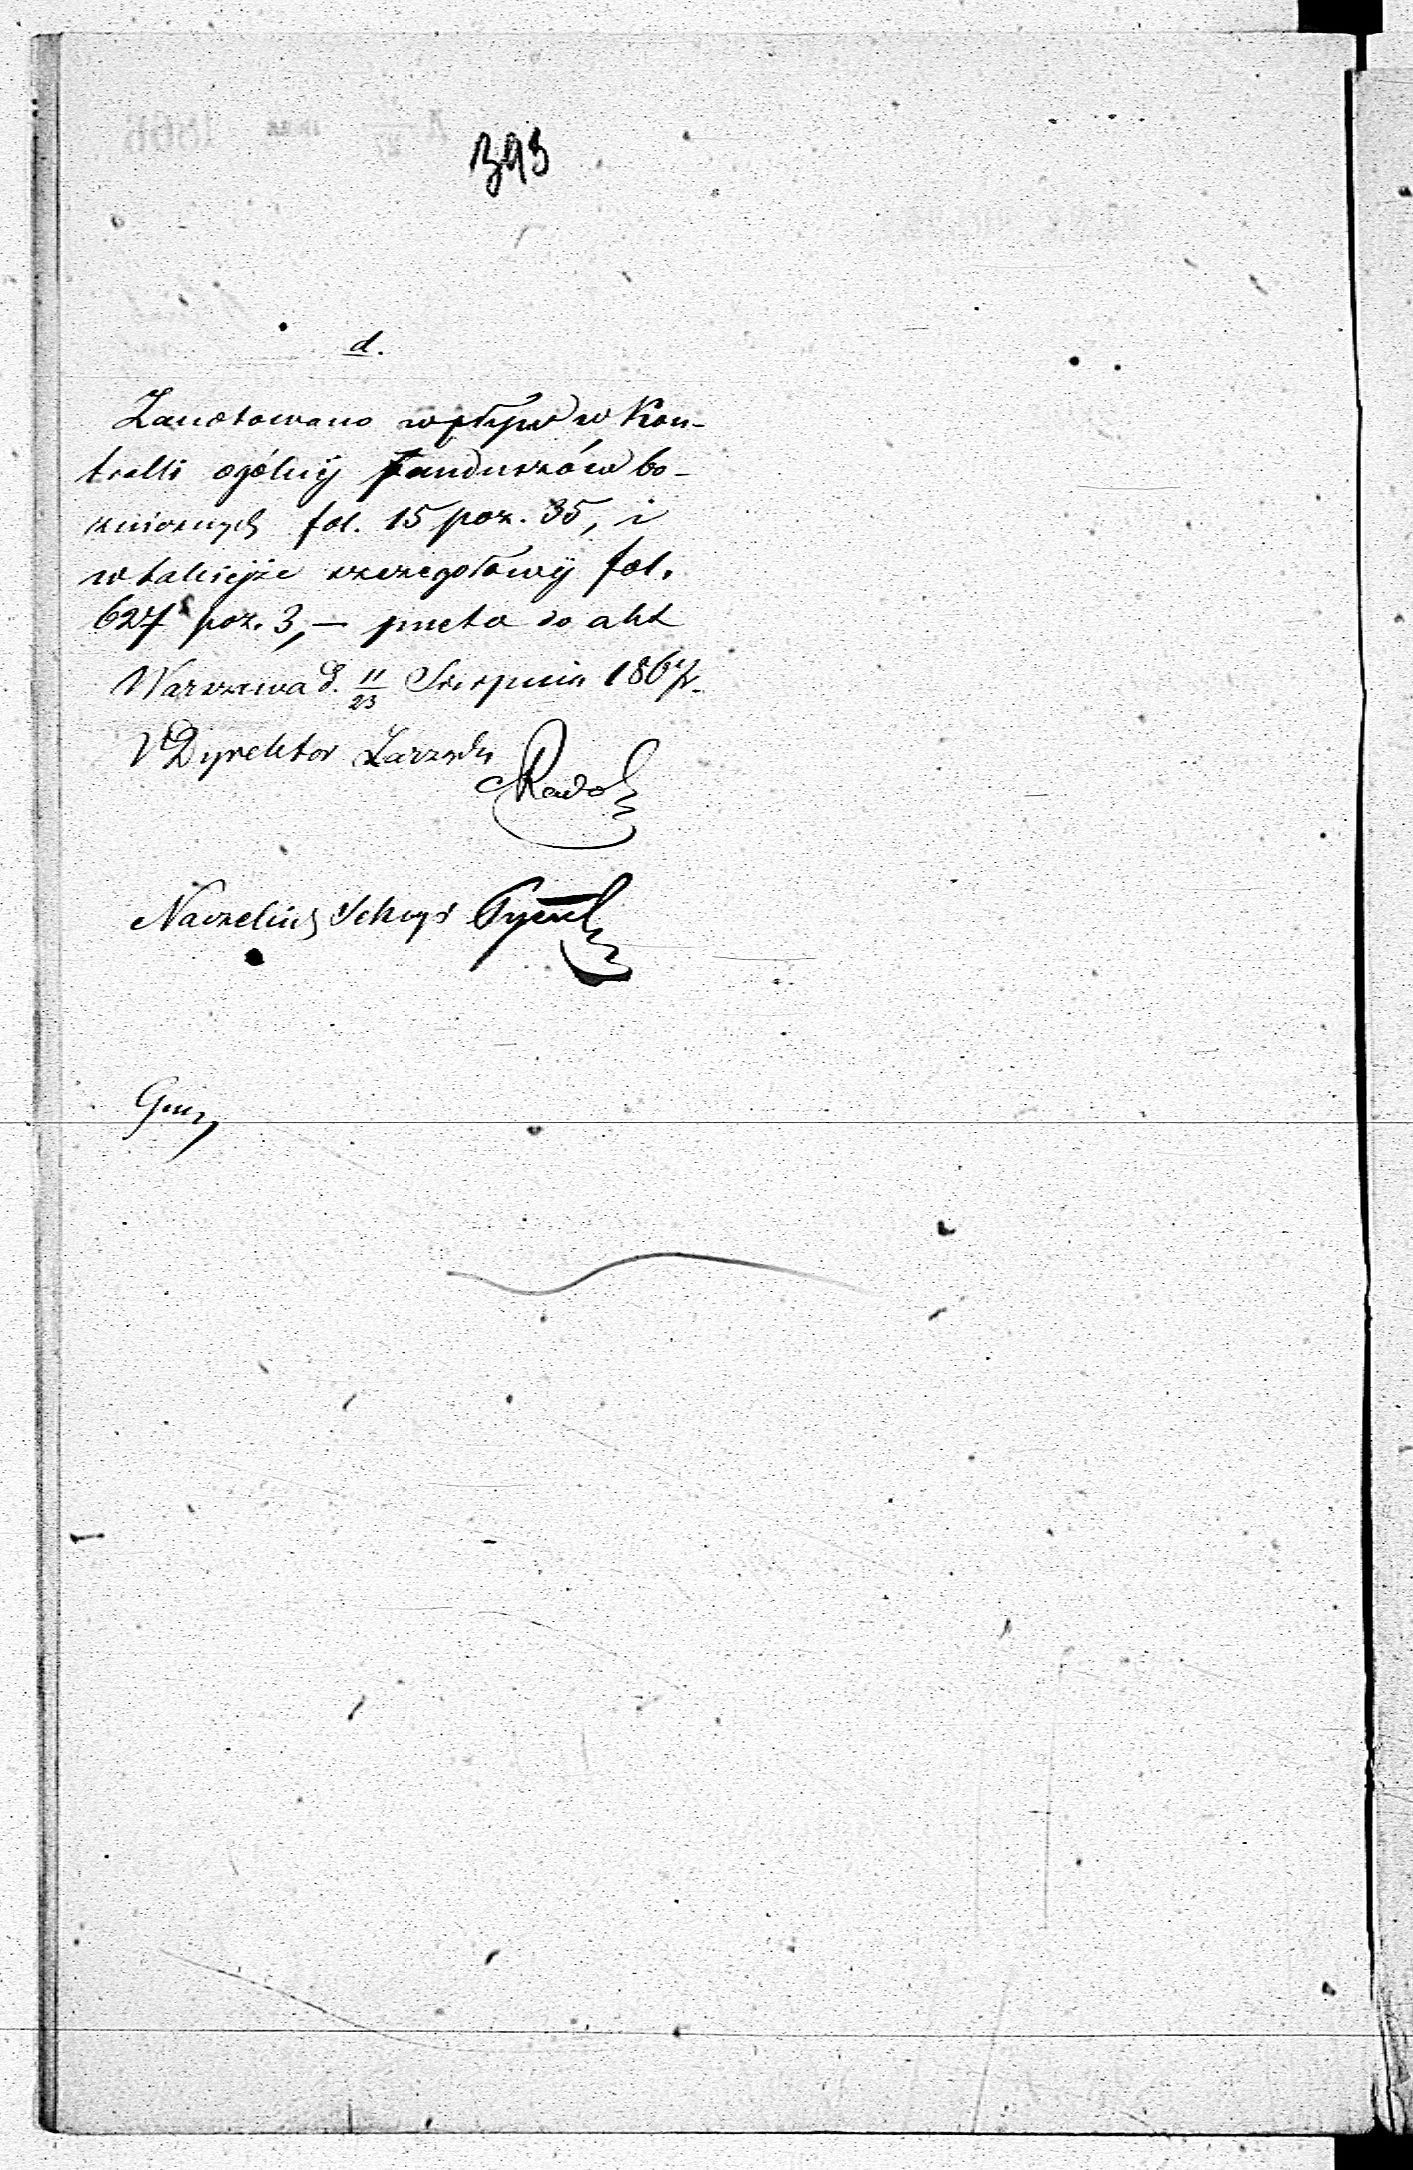 393
d.
Zanotowano wpływ w Kon-
trolli ogólnéj Funduszów bo-
żniczych fol. 15 poz. 35, i
w takiéjże szczegołowéj fol.
627 poz. 3, — poczta do akt
Warszawa d. 11/23 Sierpnia 1867 r.
VDyrektor Zarządu
Naczelnik Sekcyi